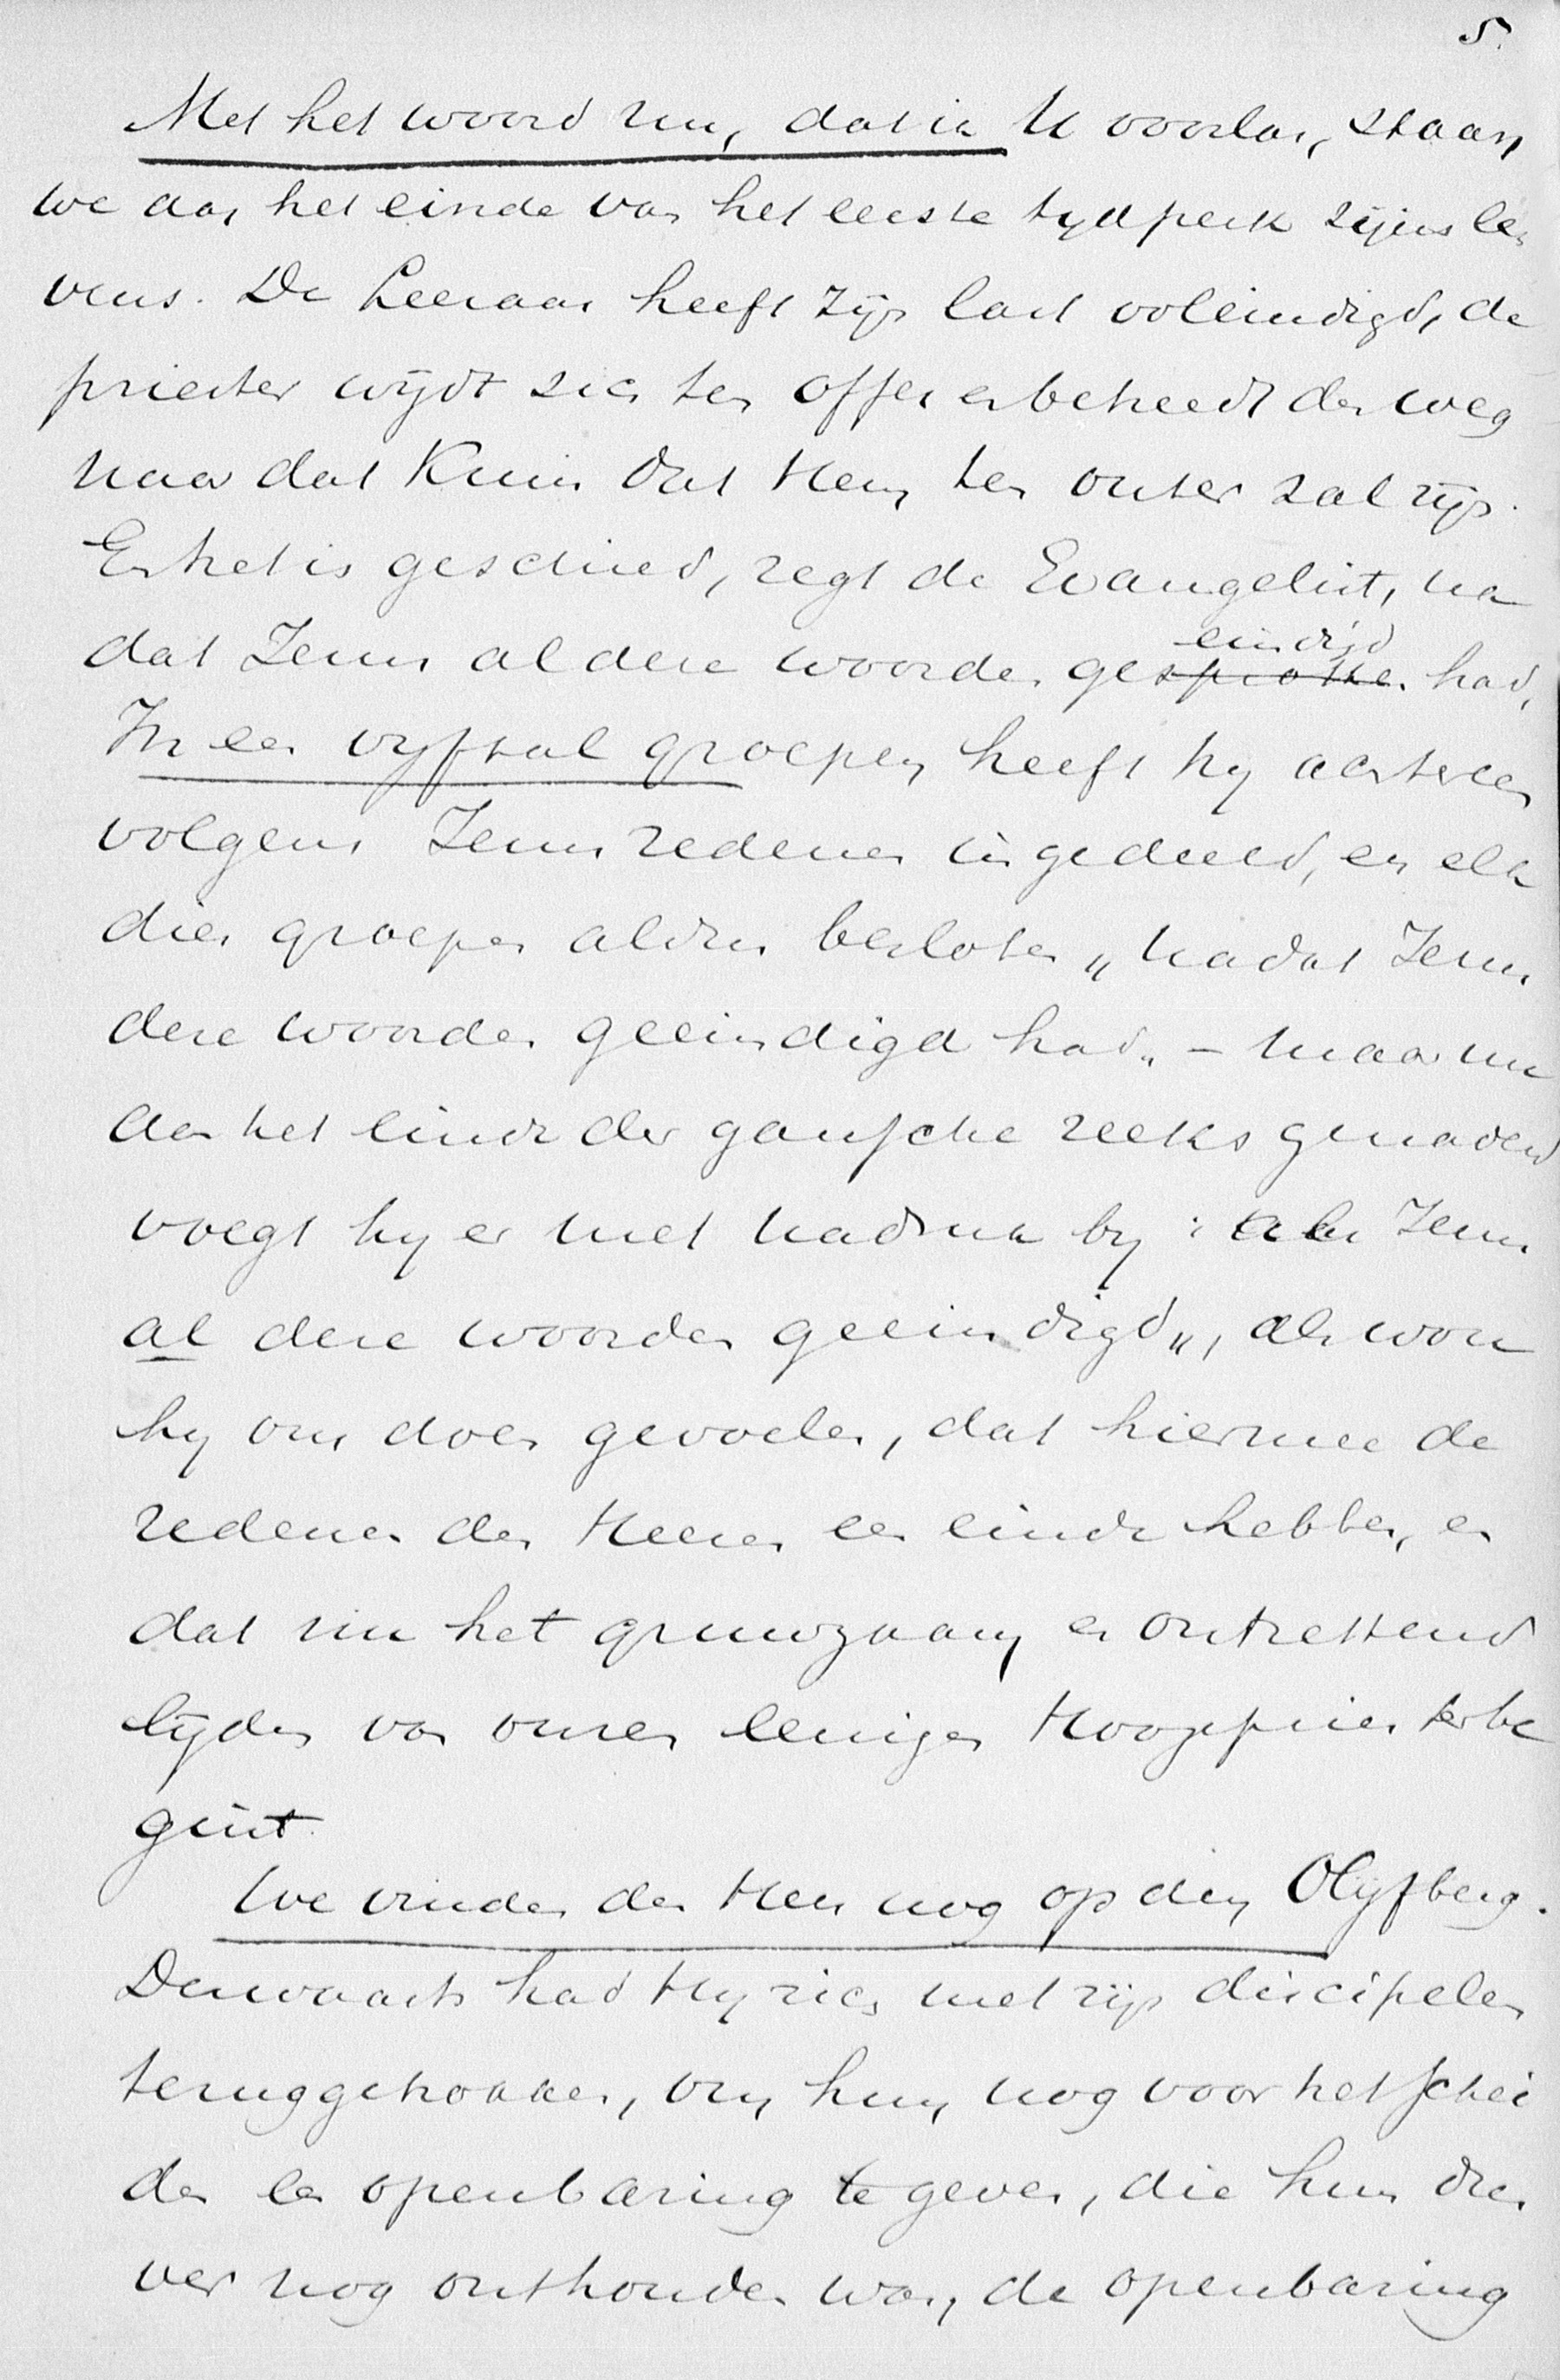 5.
Met het woord nu, dat ik U voorlas, staan
we aan het einde van het eerste tydperk zijns le
vens. De Leeraar heeft zijn last voleindigd, de
priester wijdt zich ten offer en betreedt den weg
naar dat Kruis dat Hem ten outer zal zijn.
En het is geschied, zegt de Evangelist, na
eindigd
dat Jezus al deze woorden gesproken had,
In een vyftal groepen heeft hy achtereen
volgens Jezus redenen ingedeeld, en elk
dier groepen aldus besloten „nadat Jezus
deze woorden geeindigd had„ – maar nu
aan het einde der gansche reeks genaderd
voegt hy er met nadruk by: Jezus
al deze woorden geeindigd„, als wou
hy ons doen gevoelen, dat hiermee de
redenen des Heeren een einde hebben, en
dat nu het gruwzaam en ontzettend
lijden van onzen eenigen Hoogepriester be
gint.
We vinden den Heer nog op den Olyfberg.
Derwaarts had Hy zich met zijn discipelen
teruggetrokken, om hun nog voor het schei
den een openbaring te geven, die hun dus
ver nog onthouden was, de openbaring